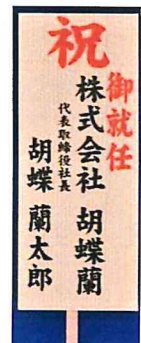 祝
御就任
株式会社 胡蝶蘭
代表取締役社長
胡蝶 蘭太郎